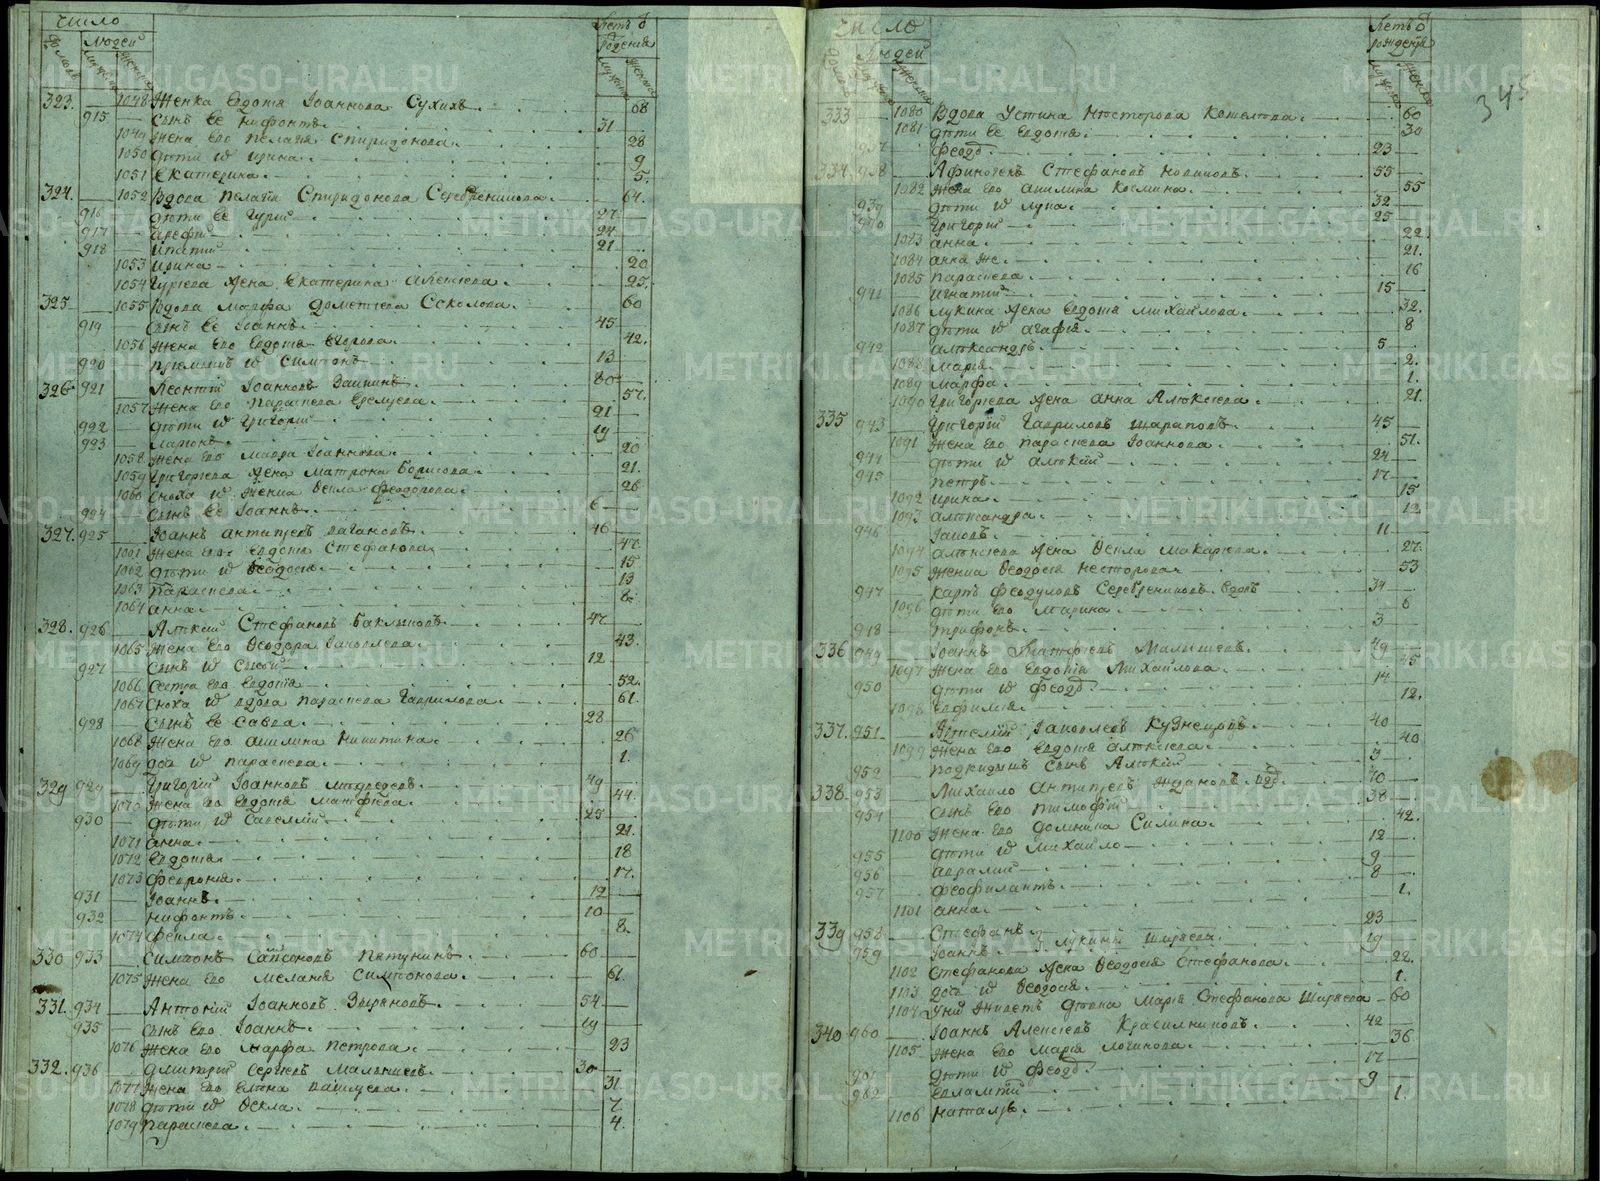 Число
Людей
Летъ ѿ рождения
323. 1048 Женка Евдотия Іоаннова Сухихъ 68
915 Сынъ ее Нифонтъ 31
1049 Жена его Пелагия Спиридонова 28
1050 Дѣти их Ирина 9
1051 Екатерина 5
324. 1052 Вдова Пелагия Спиридонова Серебреникова 64
916 Дѣти ее Гурий 27
917 Арефий 24
918 Ипатий 21
1053 Ирина 20
1054 Гуриева жена Екатерина 25
325 1055 Вдова Марфа Дометиева Соколова 60
919 Сынъ ее Іоаннъ 45
1056 Жена его Евдотия Егорова 42
920 Приемышъ их Симеонъ 13
326 921 Леонтий Іоанновъ 80
1057 Жена его Параскева 57
922 Дѣти их Григорий 21
923 Ларионъ 19
1058 Жена его Мавра Іоаннова 20
1059 Григориева жена Матрона Борисова 21
1060 Сноха их Ѳекла Феодорова 26
924 Сынъ ее Іоаннъ 6
327. 925 Іоаннъ Антипьевъ 46
1061 Жена его Евдотия Стефанова 47
1062 Дѣти их Ѳеодосия 15
1063 Параскева 13
1064 Анна 8
328. 926 Алексий Стефановъ Баклыковъ 47
1065 Жена его Ѳеодора Іаковлева 43
927 Сынъ их 12
1066 Сестра его Евдотия 52
1067 Сноха их вдова Параскева Гаврилова 61
928 Сынъ ее Савва 28
1068 Жена его Акилина Никитина 26
1069 Дочь их Параскева 1
329 929 Григорий Іоанновъ Медведевъ 49
1070 Жена его Евдотия Матфиева 44
930 Дѣти их Савелий 25
1071 Анна 21
1072 Евдотия 18
1073 Феврония 17
931 Іоаннъ 12
932 Нифонтъ 10
1074 Фекла 8
330 933 Симеонъ Самсоновъ Пятунинъ 60
1075 Жена его Мелания Симеонова 61
331. 934 Антоний Іоанновъ Зыряновъ 54
935 Сынъ его Іоаннъ 19
1076 Жена его Марфа Петрова 23
332. 936 Димитрий Сергиевъ Малышевъ 30
1077 Жена его Елена 31
1078 Дѣти их Ѳекла 7
1079 Параскева 4
Число
Людей
Летъ ѿ рождения
345
333 1080 Вдова Устина Несторова 60
1081 Дѣти ее Евдотия 30
937 Феодоръ 23
334. 938 Афиногенъ Стефановъ Новиковъ 55
1082 Жена его Акилина Космина 55
939 Дѣти их Лука 32
940 Григорий 25
1083 Анна 22
1084 Анна же 21
1085 Параскева 16
941 Игнатий 15
1086 Лукина жена Евдотия Михайлова 32
1087 Дѣти их Агафия 8
942 Александръ 5
1088 Мария 2
1089 Марфа 1
1090 Григориева жена Анна Алексиева 21
335 943 Григорий Гавриловъ Шараповъ 45
1091 Жена его Параскева Іоаннова 51
944 Дѣти их Алексий 24
945 Петръ 17
1092 Ирина 15
1093 Александра 12
946 Іаковъ 11
1094 Алексиева жена Ѳекла Макариева 27
1095 Женка Ѳеодосия Несторова 53
947 Карпъ Феодуловъ Серебрениковъ вдовъ 34
1096 Дѣти его Марина 6
948 Трифонъ 3
336 949 Іоаннъ Матфиевъ Малышевъ 49
1097 Жена его Евдотия Михайлова 45
950 Дѣти их Феодоръ 14
1098 Евфимия 12
337. 951 Артемий Іаковлевъ Кузнецовъ 40
1099 Жена его Евдотия Алексиева 40
952 Подкидышъ Сынъ Алексий 3
338. 953 Михайло Антипьевъ Ждановъ вдовъ 70
954 Сынъ его Тимофий 38
1100 Жена его Домника Силина 42
955 Дѣти их Михайло 12
956 Авраамий 9
957 Феофилактъ 8
1101 Анна 1
339 958 Стефанъ 23
959 Іоаннъ Лукины Ширяевы 19
1102 Стефанова жена Ѳеодосия Стефанова 22
1103 Дочь их Ѳеодосия 1
1104 У них живетъ Дѣвка Мария Стефанова Ширяева 60
340 960 Іоаннъ Алексиевъ Красилниковъ 42
1105 Жена его Мария Логинова 36
961 Дѣти их Феодоръ 17
962 Евлампий 9
1106 Наталья 1
METRIKI.GASO-URAL.RU